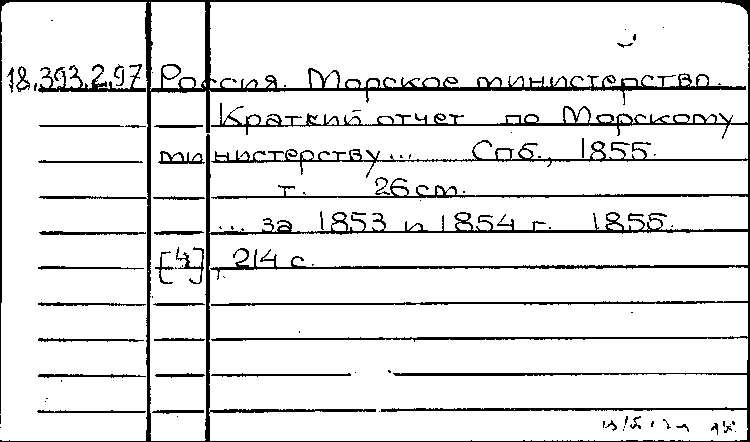 18.393.2.97 Россия. Морское министерство.
Краткий отчет по Морскому
министерству... Спб., 1855.
т. 26 см.
... за 1853 и 1854 г. 1855.
[4], 214 с.